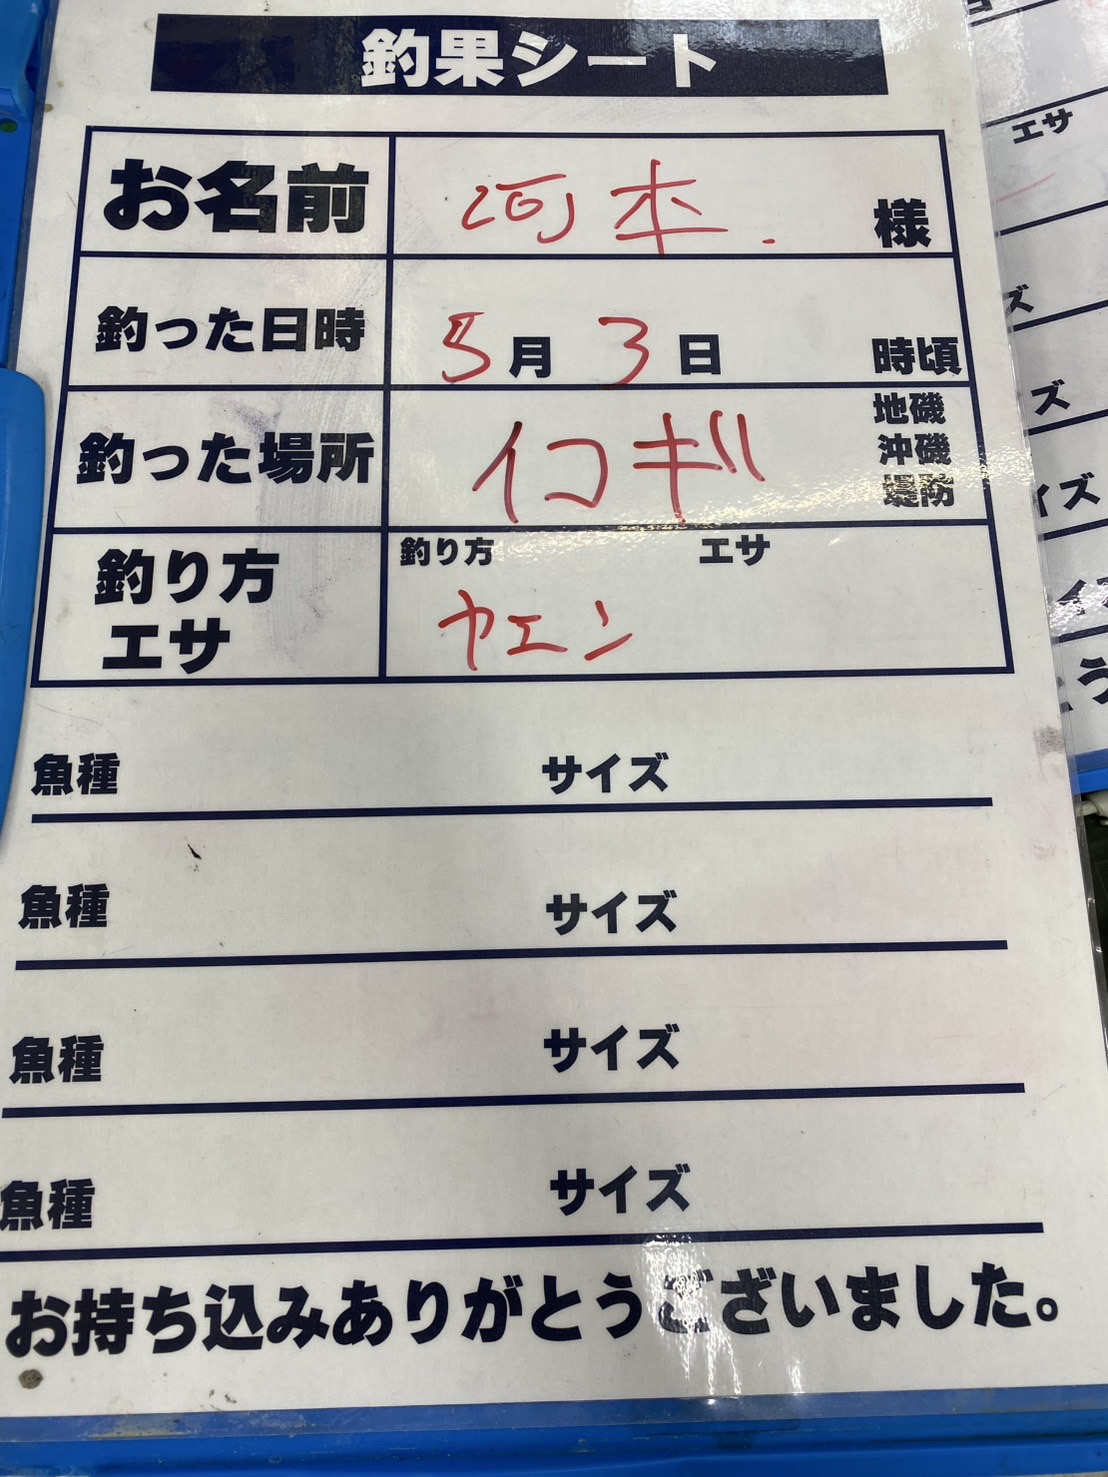 釣果シート
お名前 河本. 様
釣った日時 5月3日 時頃
釣った場所 イコギ 地磯
沖磯
堤防
釣り方
エサ
釣り方 エサ
ヤエン
魚種 サイズ
魚種 サイズ
魚種 サイズ
魚種 サイズ
お持ち込みありがとうございました。
エサ
ズ
ズ
イズ